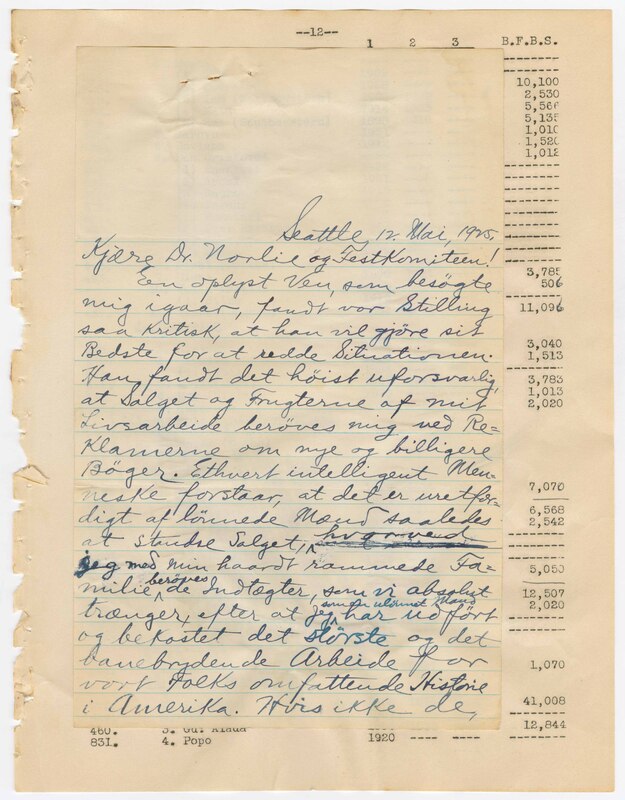 --12--
1 2 3 B.F.B.S.
10,100
2,530
5,566
5,135
1,010
1,520
1,012
Seattle, 12. Mai, 1925.
Kjære Dr. Norlie og Festkomiteen!
3,785
En oplyst Ven, som besögte
506
mig igaar, fandt vor Stilling
11,096
saa kritisk, at han vil gjöre sit
3,040
Bedste for at redde Situationen.
1,513
Han fandt det höist uforsvarlig,
3,783
1,013
at Salget og Frugterne af mit
2,020
Livsarbeide beröves mig ved Re=
klamerne om nye og billigere
Böger. Ethvert intelligent Men=
7,070
neske forstaar, at det er uretfær=
6,568
digt af lönnede Mænd saaledes
2,542
at standse Salget, hvorved
jeg med min haardt rammede Fa=
5,050
milie beröves de Indtægter, som vi absolut
12,507
trænger, efter at jeg som en ulönnet Mand har udfört
2,020
og bekostet det störste og det
banebrydende Arbeide for
1,070
vort Folks omfattende Historie
41,008
i Amerika. Hvis ikke de,
12,844
460. 3. Gu: Alada
831. 4. Popo 1920 ---- ----